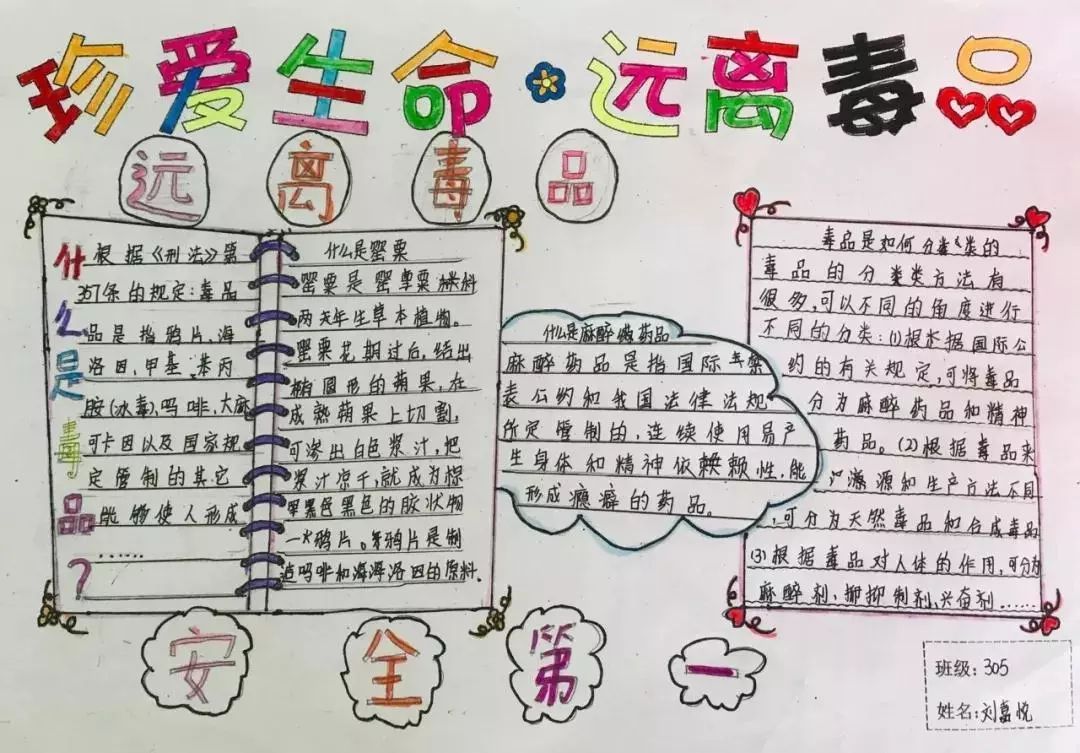 珍爱生命·远离毒品
远离毒品
什么是毒品?
根据《刑法》第
357条的规定:毒品
品是指鸦片,海
洛因,甲基苯丙
胺(冰毒),吗啡,大麻
可卡因以及国家规
定管制的其它
能够使人形成
……
什么是罂粟
罂粟是罂粟
两年生草本植物。
罂粟花期过后,结出
椭圆形的蒴果,在
成熟蒴果上切割,
可渗出白色浆汁,把
浆汁凉干,就成为棕
黑色的胶状物
鸦片。鸦片是制
造吗啡和海洛因的原料.
什么是麻醉药品
麻醉药品是指国际禁
表公约和我国法律法规
所定管制的,连续使用易产
生身体和精神依赖性,能
形成瘾癖的药品。
毒品是如何分类的
毒品的分类方法有
很多,可以不同的角度进行
不同的分类:(1)根据国际公
约的有关规定,可将毒品
分为麻醉药品和精神
药品。(2)根据毒品来
源和生产方法不同
,可分为天然毒品和合成毒品
(3)根据毒品对人体的作用,可分为
麻醉剂、抑制剂、兴奋剂……
安全第一
班级:305
姓名:刘嘉悦